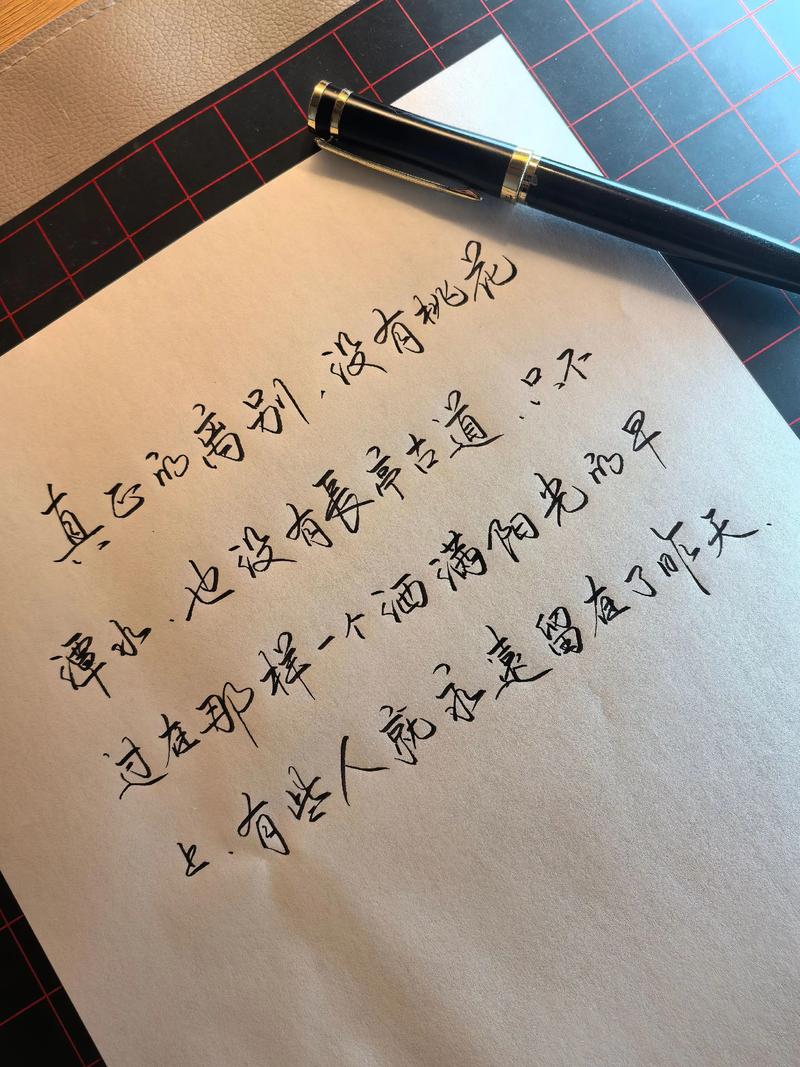 真正的离别、没有桃花
潭水、也没有長亭古道、只不
过在那样一个洒满阳光的早
上、有些人就永遠留在了昨天.